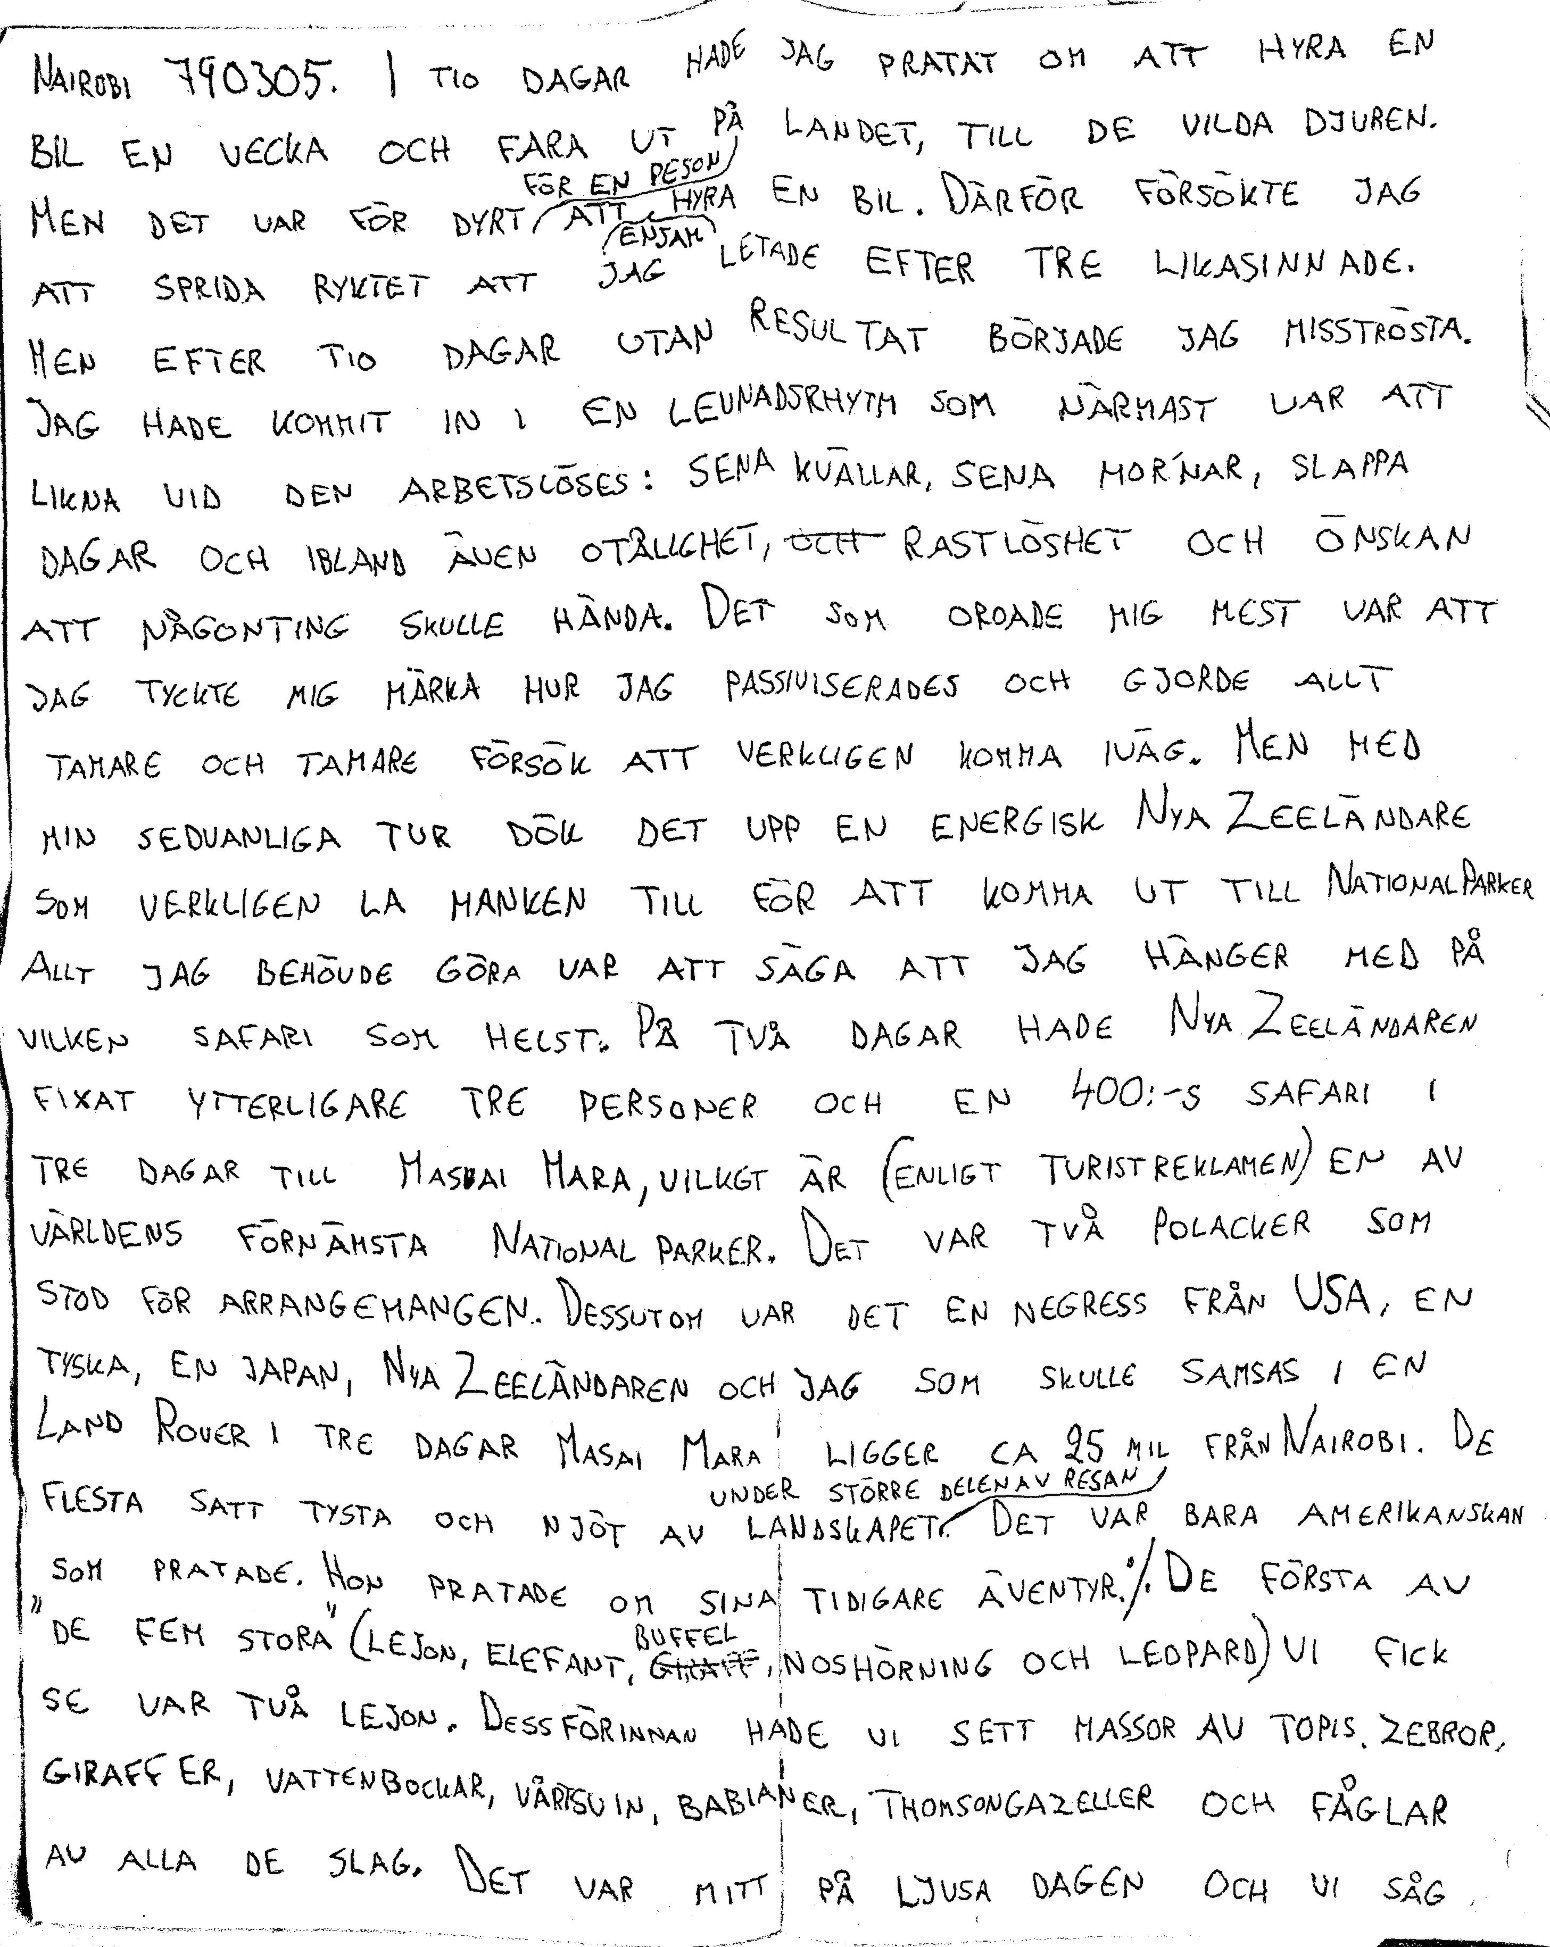 NAIROBI 790305. I TIO DAGAR HADE JAG PRATAT OM ATT HYRA EN
BIL EN VECKA OCH FARA UT PÅ LANDET, TILL DE VILDA DJUREN.
FÖR EN PESON
MEN DET VAR FÖR DYRT ATT HYRA EN BIL. DÄRFÖR FÖRSÖKTE JAG
(ENSAM)
ATT SPRIDA RYKTET ATT JAG LETADE EFTER TRE LIKASINNADE.
MEN EFTER TIO DAGAR UTAN RESULTAT BÖRJADE JAG MISSTRÖSTA.
JAG HADE KOMMIT IN I EN LEVNADSRHYTM SOM NÄRMAST VAR ATT
LIKNA VID DEN ARBETSLÖSES: SENA KVÄLLAR, SENA MOR'NAR, SLAPPA
DAGAR OCH IBLAND ÄVEN OTÅLIGHET, OCH RASTLÖSHET OCH ÖNSKAN
ATT NÅGONTING SKULLE HÄNDA. DET SOM OROADE MIG MEST VAR ATT
JAG TYCKTE MIG MÄRKA HUR JAG PASSIVISERADES OCH GJORDE ALLT
TAMARE OCH TAMARE FÖRSÖK ATT VERKLIGEN KOMMA IVÄG. MEN MED
MIN SEDVANLIGA TUR DÖK DET UPP EN ENERGISK NYA ZEELÄNDARE
SOM VERKLIGEN LA MANKEN TILL FÖR ATT KOMMA UT TILL NATIONALPARKER
ALLT JAG BEHÖVDE GÖRA VAR ATT SÄGA ATT JAG HÄNGER MED PÅ
VILKEN SAFARI SOM HELST. PÅ TVÅ DAGAR HADE NYA ZEELÄNDAREN
FIXAT YTTERLIGARE TRE PERSONER OCH EN 400:-S SAFARI I
TRE DAGAR TILL MASAI MARA, VILKET ÄR (ENLIGT TURISTREKLAMEN) EN AV
VÄRLDENS FÖRNÄMSTA NATIONAL PARKER. DET VAR TVÅ POLACKER SOM
STOD FÖR ARRANGEMANGEN. DESSUTOM VAR DET EN NEGRESS FRÅN USA, EN
TYSKA, EN JAPAN, NYA ZEELÄNDAREN OCH JAG SOM SKULLE SAMSAS I EN
LAND ROVER I TRE DAGAR MASAI MARA LIGGER CA 25 MIL FRÅN NAIROBI. DE
UNDER STÖRRE DELEN AV RESAN
FLESTA SATT TYSTA OCH NJÖT AV LANDSKAPET. DET VAR BARA AMERIKANSKAN
SOM PRATADE. HON PRATADE OM SINA TIDIGARE ÄVENTYR. ./. DE FÖRSTA AV
BUFFEL
"DE FEM STORA" (LEJON, ELEFANT, GIRAFF, NOSHÖRNING OCH LEOPARD) VI FICK
SE VAR TVÅ LEJON. DESSFÖRINNAN HADE VI SETT MASSOR AV TOPIS, ZEBROR,
GIRAFFER, VATTENBOCKAR, VÅRTSVIN, BABIANER, THOMSONGAZELLER OCH FÅGLAR
AV ALLA DE SLAG. DET VAR MITT PÅ LJUSA DAGEN OCH VI SÅG